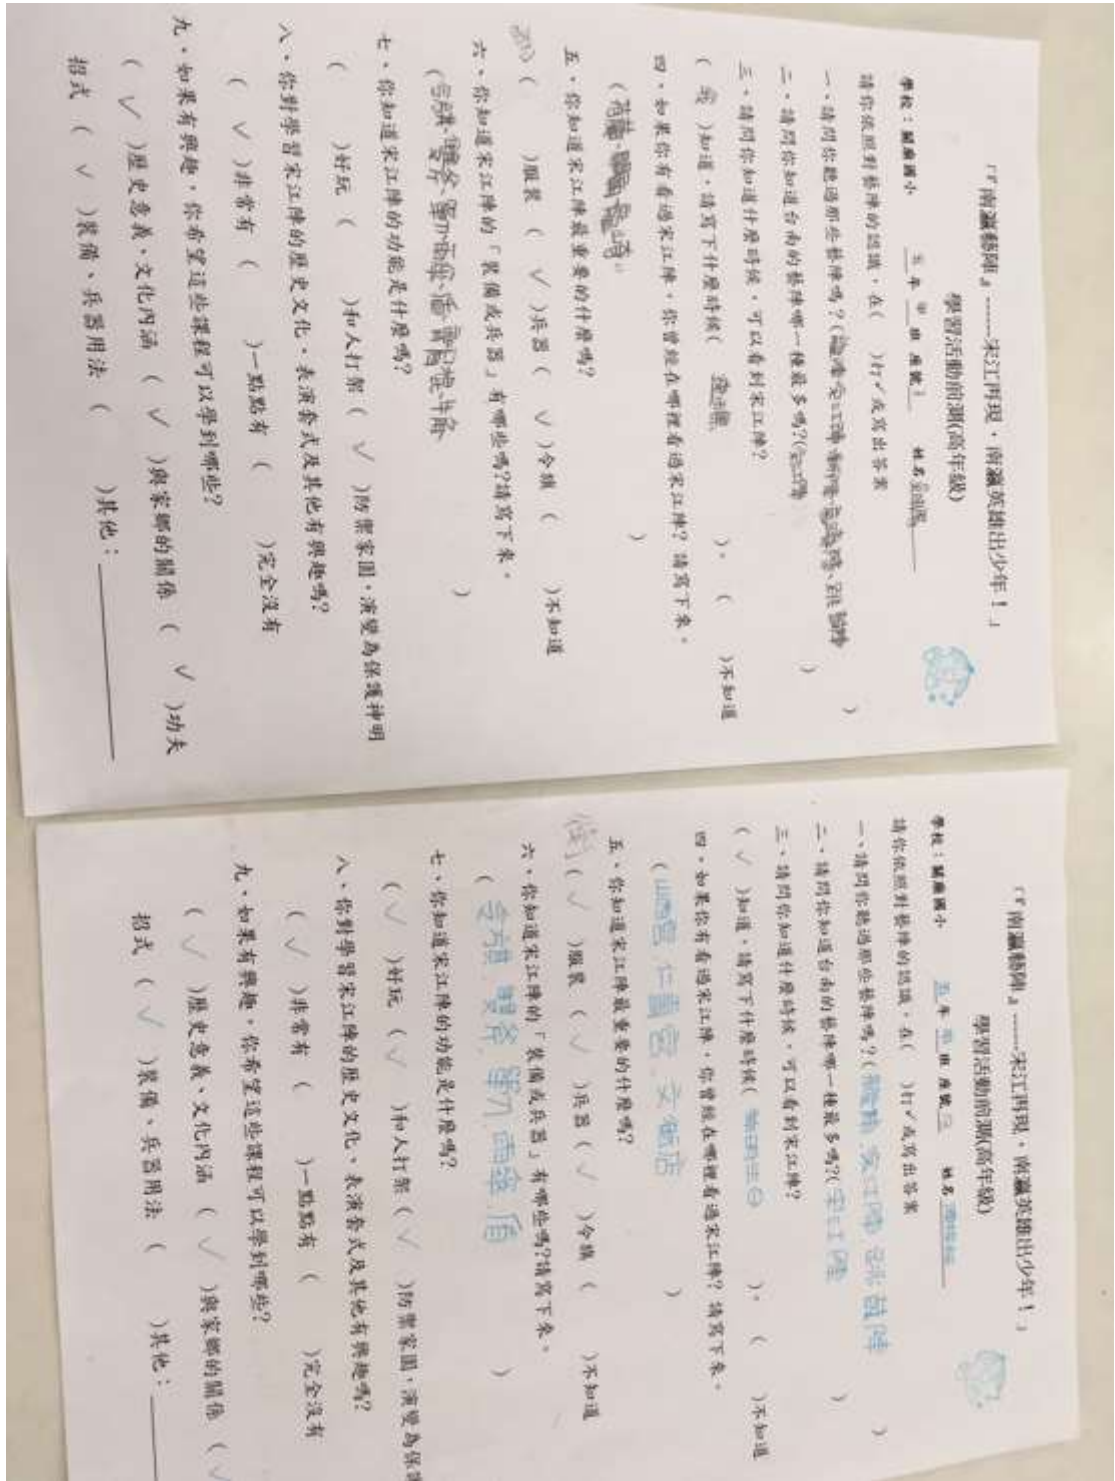 「『南瀛藝陣』——宋江再現，南瀛英雄出少年！」
學習活動前測(高年級)
學校：關廟國小 五年 甲 班 座號 姓名
請你依照對藝陣的認識，在( )打✓或寫出答案
一、請問你聽過那些藝陣嗎？( )
二、請問你知道台南的藝陣哪一種最多嗎?(宋江陣 )
三、請問你知道什麼時候，可以看到宋江陣?
( )知道，請寫下什麼時候( )。( )不知道
四、如果你有看過宋江陣，你曾經在哪裡看過宋江陣? 請寫下來。
( 龜崎。 )
五、你知道宋江陣最重要的什麼嗎?
( )服裝 ( ✓ )兵器 ( ✓ )令旗 ( )不知道
六、你知道宋江陣的「裝備或兵器」有哪些嗎?請寫下來。
( 雙斧 單刀 雨傘 盾 )
七、你知道宋江陣的功能是什麼嗎?
( )好玩 ( )和人打架 ( ✓ )防禦家園，演變為保護神明
八、你對學習宋江陣的歷史文化、表演套式及其他有興趣嗎?
( ✓ )非常有 ( )一點點有 ( )完全沒有
九、如果有興趣，你希望這些課程可以學到哪些?
( ✓ )歷史意義、文化內涵 ( ✓ )與家鄉的關係 ( ✓ )功夫
招式 ( ✓ )裝備、兵器用法 ( )其他：
「『南瀛藝陣』——宋江再現，南瀛英雄出少年！」
學習活動前測(高年級)
學校：關廟國小 五 年 甲 班 座號 姓名
請你依照對藝陣的認識，在( )打✓或寫出答案
一、請問你聽過那些藝陣嗎？( 宋江陣 鼓陣 )
二、請問你知道台南的藝陣哪一種最多嗎?( 宋江陣 )
三、請問你知道什麼時候，可以看到宋江陣?
( ✓ )知道，請寫下什麼時候( 神明生日 )。( )不知道
四、如果你有看過宋江陣，你曾經在哪裡看過宋江陣? 請寫下來。
( 山西宮 仁 宮 文 店 )
五、你知道宋江陣最重要的什麼嗎?
( ✓ )服裝 ( ✓ )兵器 ( ✓ )令旗 ( )不知道
六、你知道宋江陣的「裝備或兵器」有哪些嗎?請寫下來。
( 令旗 雙斧 單刀 雨傘 盾 )
七、你知道宋江陣的功能是什麼嗎?
( ✓ )好玩 ( ✓ )和人打架 ( ✓ )防禦家園，演變為保護
八、你對學習宋江陣的歷史文化、表演套式及其他有興趣嗎?
( ✓ )非常有 ( )一點點有 ( )完全沒有
九、如果有興趣，你希望這些課程可以學到哪些?
( ✓ )歷史意義、文化內涵 ( ✓ )與家鄉的關係 ( ✓
招式 ( ✓ )裝備、兵器用法 ( )其他：